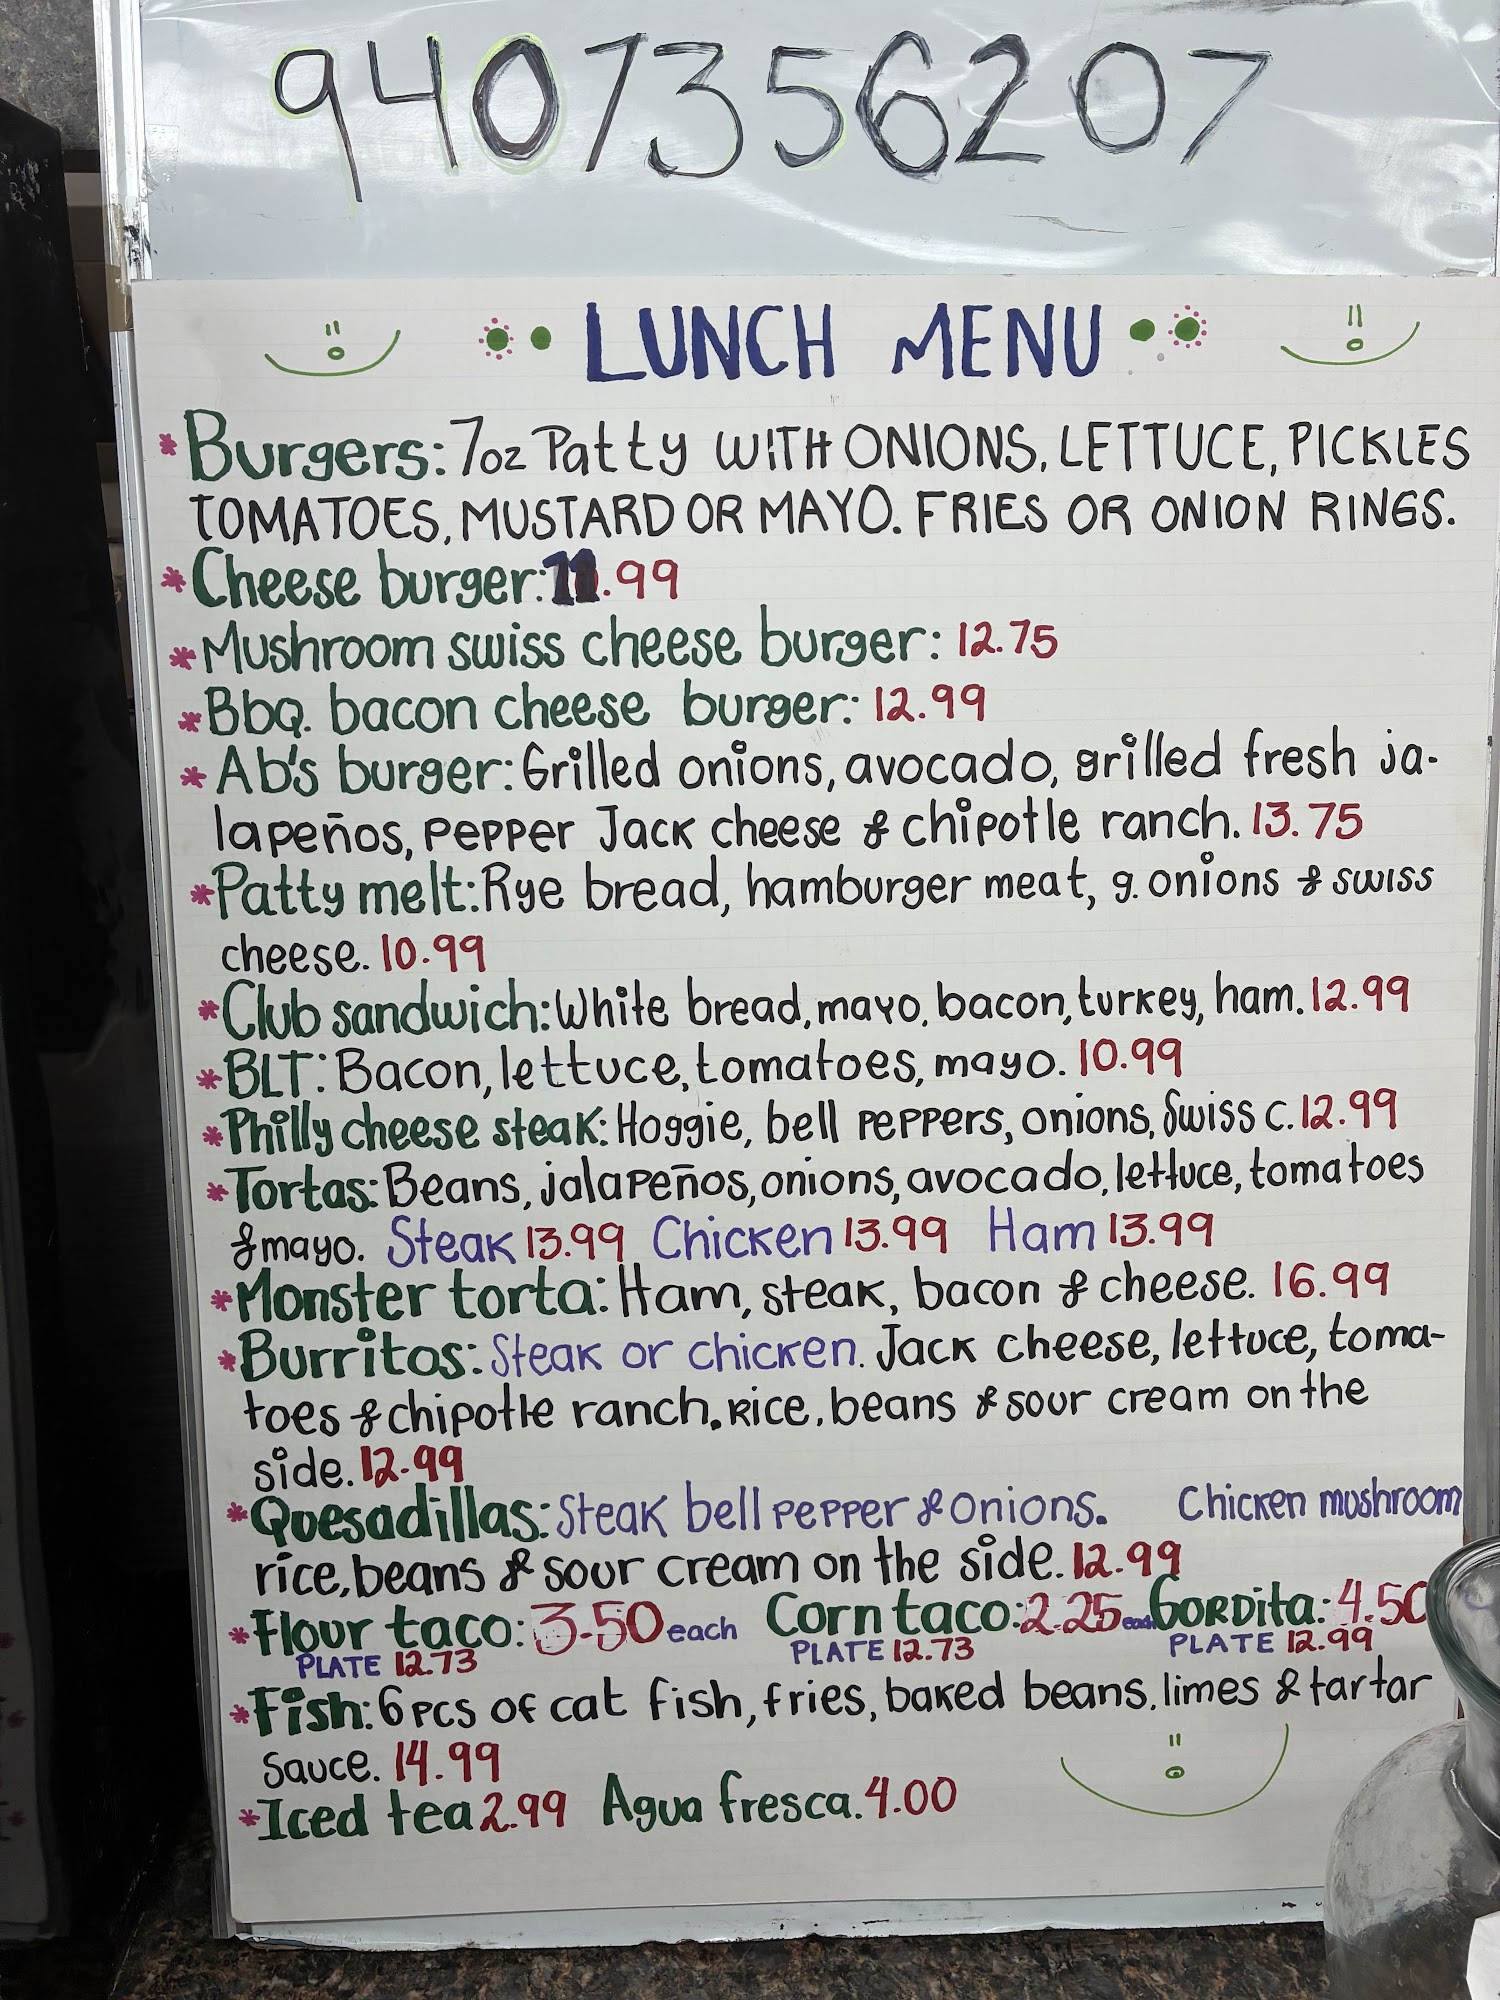 9407356207
LUNCH MENU
*Burgers: 7oz Patty WITH ONIONS, LETTUCE, PICKLES
TOMATOES, MUSTARD OR MAYO. FRIES OR ONION RINGS.
*Cheese burger: 11.99
*Mushroom swiss cheese burger: 12.75
*Bbq. bacon cheese burger: 12.99
*Ab's burger: Grilled onions, avocado, grilled fresh ja-
lapeños, pepper Jack cheese & chipotle ranch. 13.75
*Patty melt: Rye bread, hamburger meat, g. onions & swiss
cheese. 10.99
*Club sandwich: White bread, mayo, bacon, turkey, ham. 12.99
*BLT: Bacon, lettuce, tomatoes, mayo. 10.99
*Philly cheese steak: Hoggie, bell peppers, onions, Swiss c. 12.99
*Tortas: Beans, jalapeños, onions, avocado, lettuce, tomatoes
& mayo. Steak 13.99 Chicken 13.99 Ham 13.99
*Monster torta: Ham, steak, bacon & cheese. 16.99
*Burritos: Steak or chicken. Jack cheese, lettuce, toma-
toes & chipotle ranch. Rice, beans & sour cream on the
side. 12.99
*Quesadillas: Steak bell pepper & onions. Chicken mushroom
rice, beans & sour cream on the side. 12.99
*Flour taco: 3.50 each Corn taco: 2.25 each Gordita: 4.50
PLATE 12.73 PLATE 12.73 PLATE 12.99
*Fish: 6 pcs of cat fish, fries, baked beans, limes & tartar
sauce. 14.99
*Iced tea 2.99 Agua fresca. 4.00